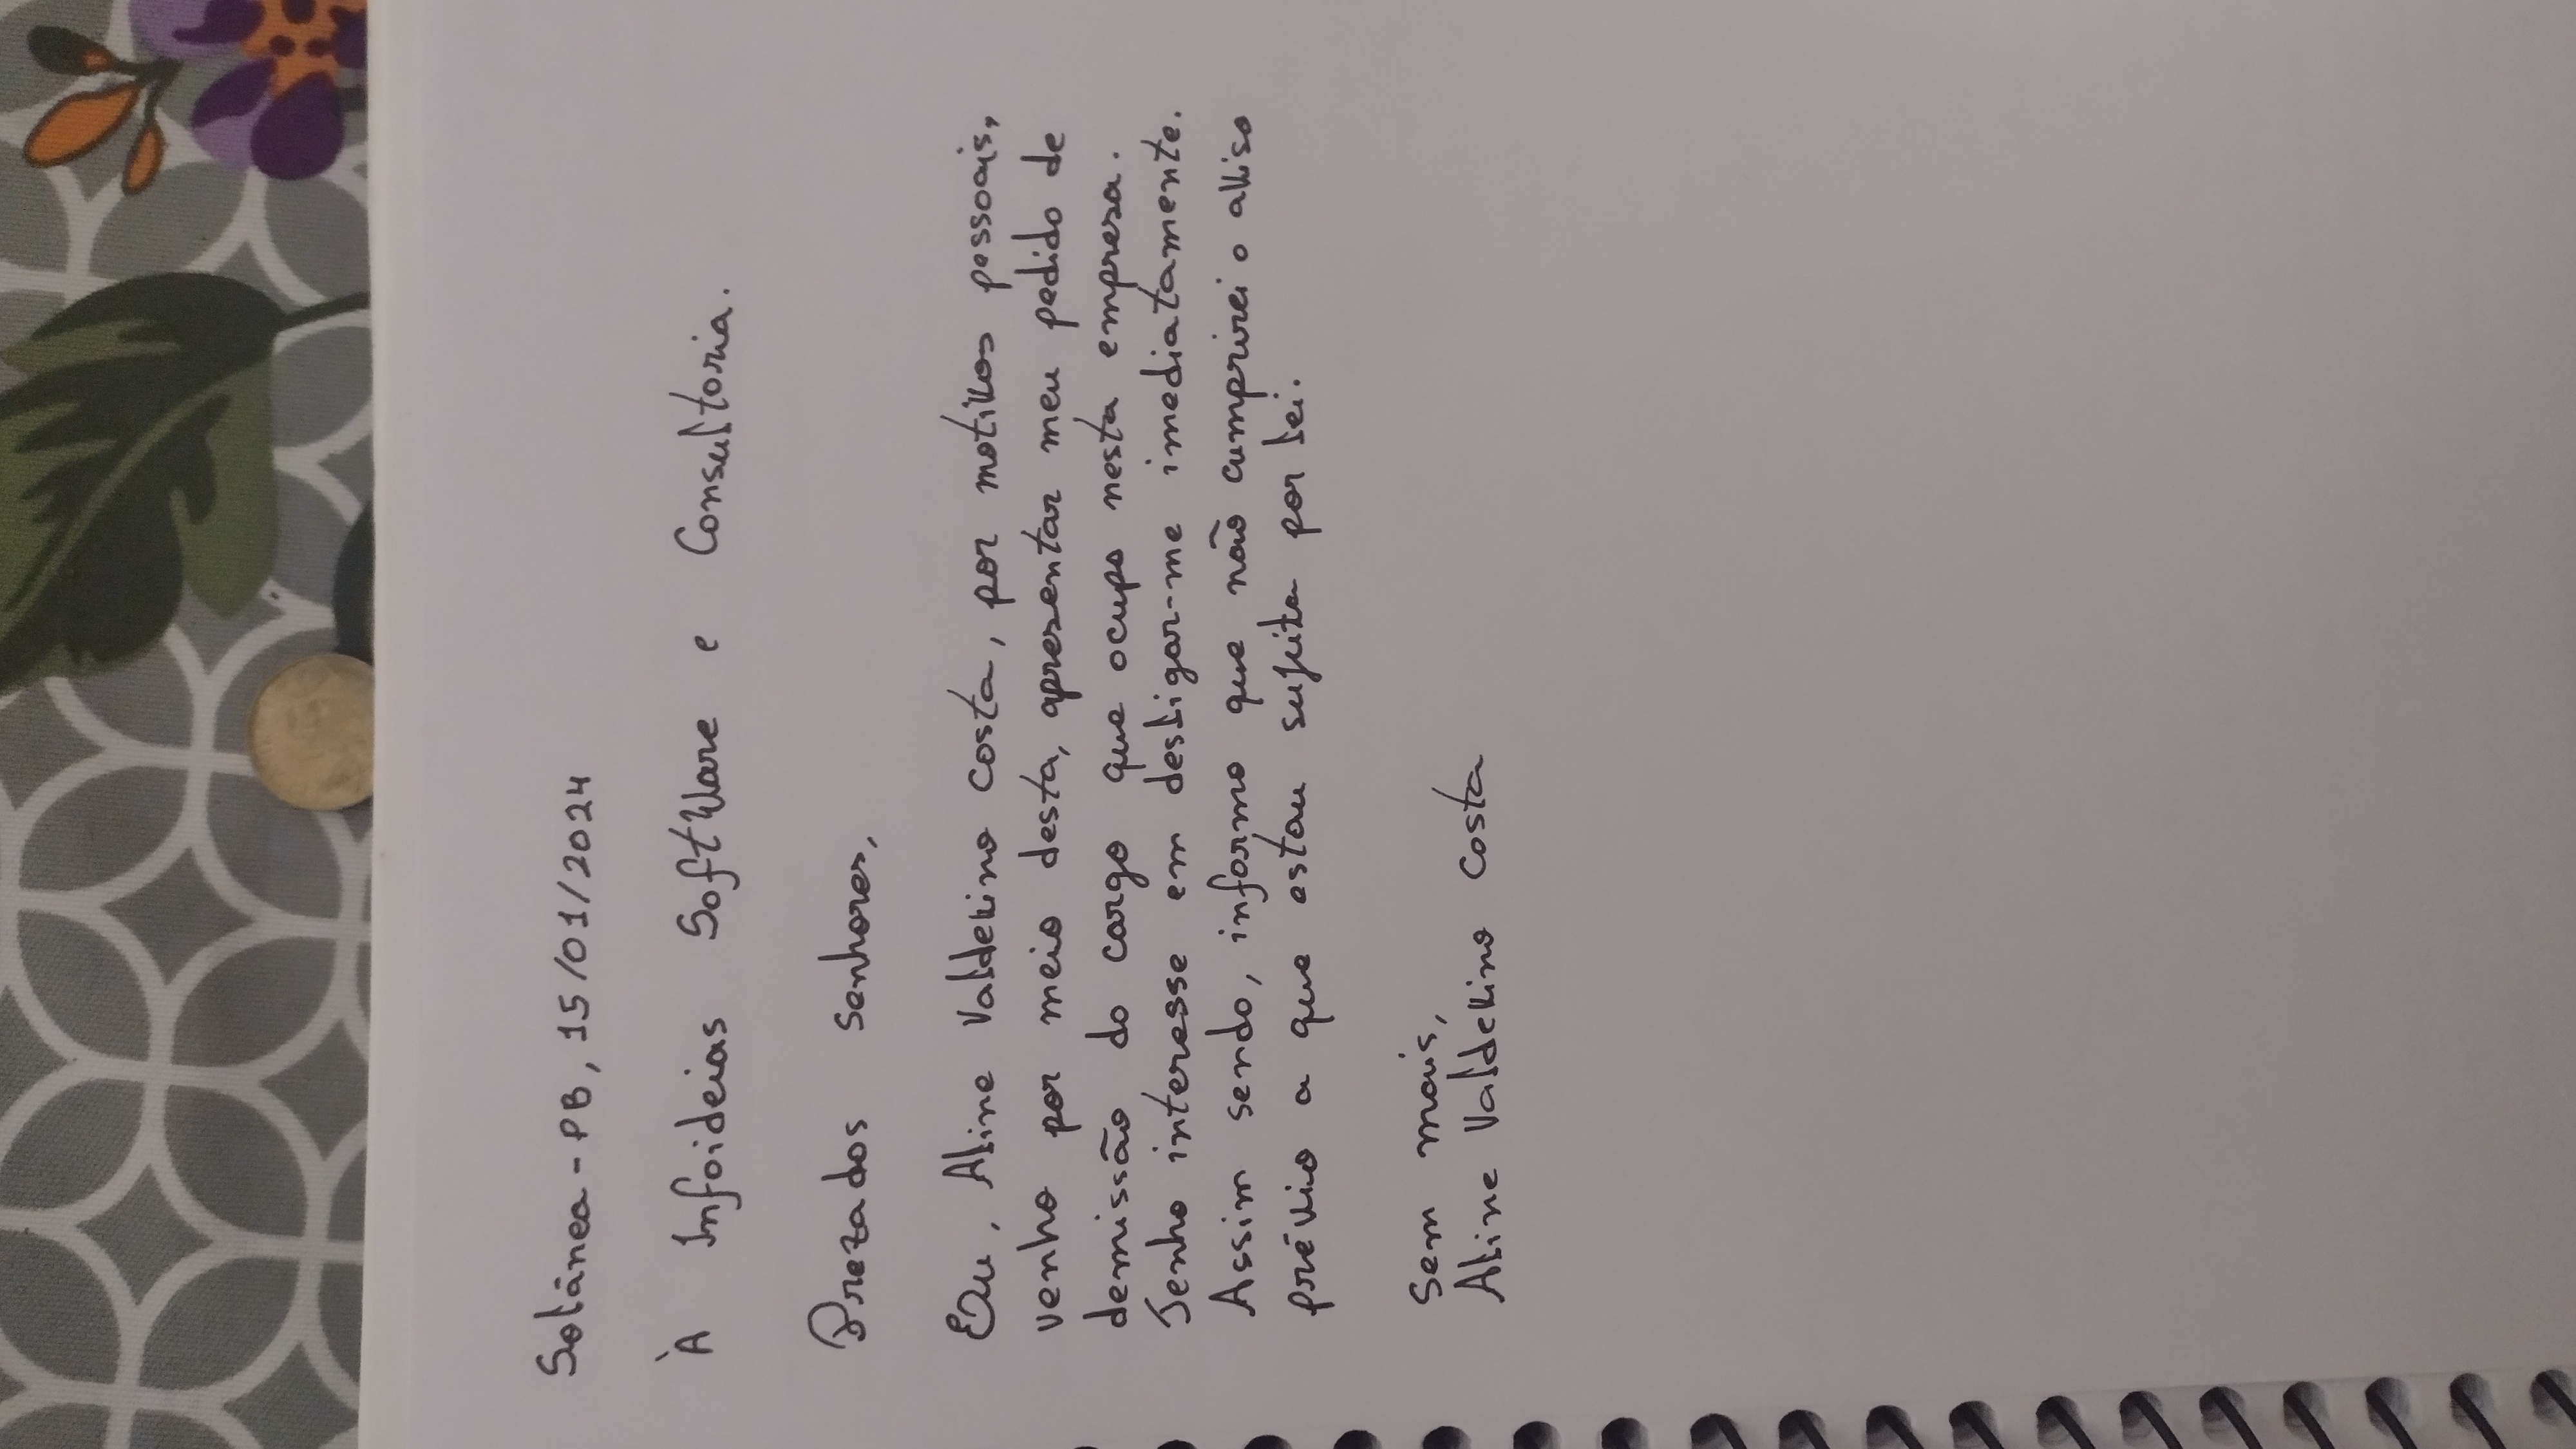 Solânea-PB, 15/01/2024
À Infoideias Software e Consultoria.
Prezados senhores,
Eu, Aline Valdevino costa, por motivos pessoais,
venho por meio desta, apresentar meu pedido de
demissão do cargo que ocupo nesta empresa.
Tenho interesse em desligar-me imediatamente.
Assim sendo, informo que não cumprirei o aviso
prévio a que estou sujeita por lei.
Sem mais,
Aline Valdevino costa